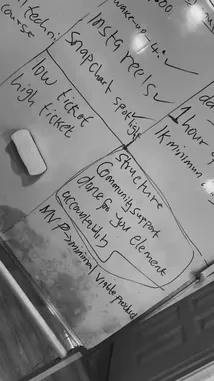 techni
course
wake-up
Insta reels ✓
Snapchat spotlight
low ticket
high ticket
1 hour
1k minimum
Structure
Community support
done for you element
accountability
MVP → minimal viable product